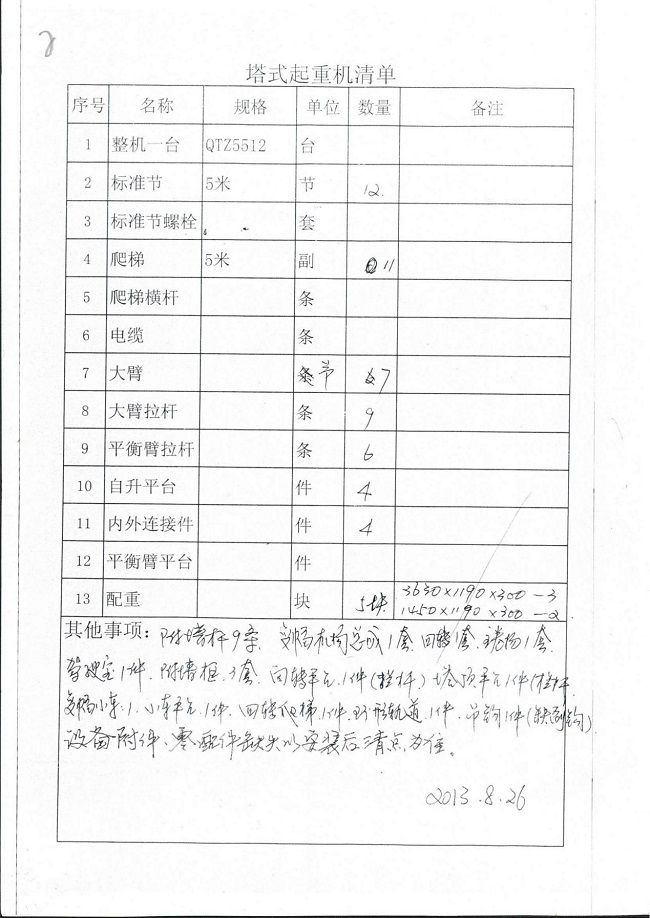 2
塔式起重机清单
序号 名称 规格 单位 数量 备注
1 整机一台 QTZ5512 台
2 标准节 5米 节 12
3 标准节螺栓 套
4 爬梯 5米 副 11
5 爬梯横杆 条
6 电缆 条
7 大臂 节 7
8 大臂拉杆 条 9
9 平衡臂拉杆 条 6
10 自升平台 件 4
11 内外连接件 件 4
12 平衡臂平台 件
13 配重 块 5块 3630×1190×300—3
1450×1190×300—2
其他事项：附墙杆9条. 机构总成1套. 回转1套. 1套.
驾驶室1件. 附墙框.3套. 回转单元.1件(栏杆) 塔顶单元1件(栏杆
小车.1. 小车单元.1件. 回转爬梯.1件. 轨道.1件. 吊钩1件(缺副钩)
设备附件、零配件缺失以安装后清点为准。
2013.8.26